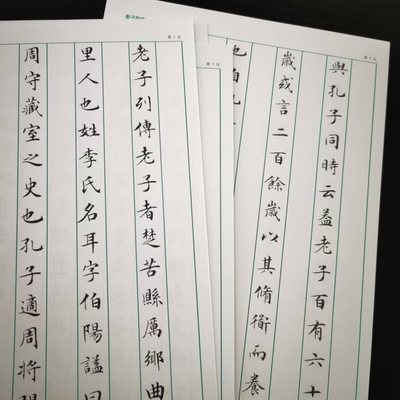 老子列傳老子者楚苦縣厲鄉曲
里人也姓李氏名耳字伯陽謚曰
周守藏室之史也孔子適周將
與孔子同時云蓋老子百有六十
歲或言二百餘歲以其脩衟而養
也自孔